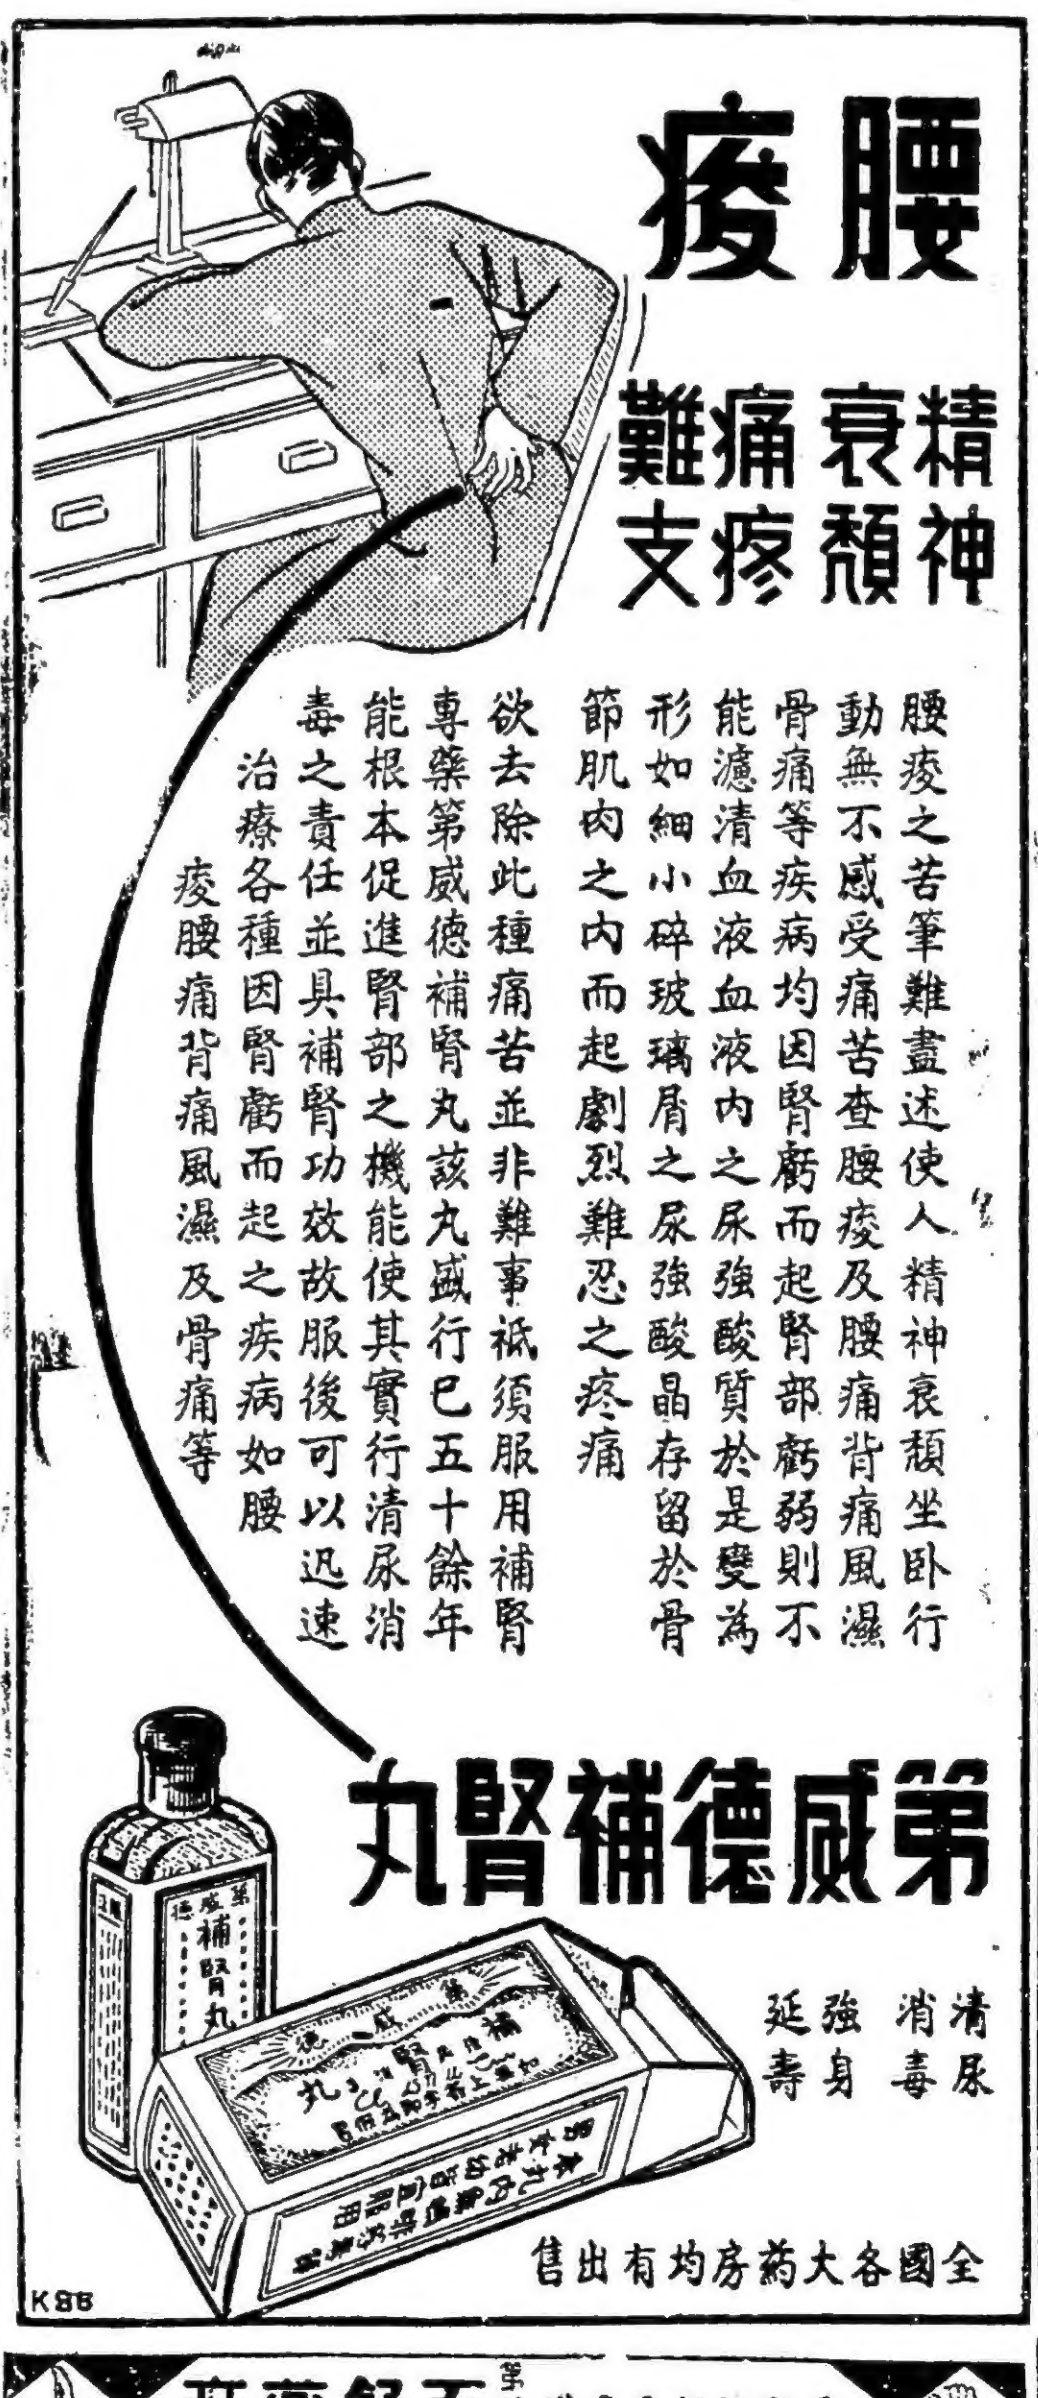 腰痠
精神
衰頹
痛疼
難支
腰痠之苦筆難盡述使人精神衰頹坐卧行
動無不感受痛苦查腰痠及腰痛背痛風濕
骨痛等疾病均因腎虧而起腎部虧弱則不
能濾清血液血液內之尿強酸質於是變為
形如細小碎玻璃屑之尿強酸晶存留於骨
節肌肉之內而起劇烈難忍之疼痛
欲去除此種痛苦並非難事祇須服用補腎
專藥第威德補腎丸該丸盛行已五十餘年
能根本促進腎部之機能使其實行清尿消
毒之責任並具補腎功效故服後可以迅速
治療各種因腎虧而起之疾病如腰
痠腰痛背痛風濕及骨痛等
第威德補腎丸
清尿
消毒
強身
延壽
全國各大药房均有出售
第威德
補腎丸
第威德
補腎丸
K86
第